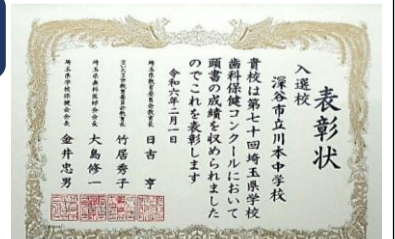 表彰状
入選校
深谷市立川本中学校
貴校は第七十回埼玉県学校
歯科保健コンクールにおいて
頭書の成績を収められました
のでこれを表彰します
令和六年二月一日
埼玉県教育委員会教育長 日吉 亨
さいたま市教育委員会教育長 竹居秀子
埼玉県歯科医師会会長 大島修一
埼玉県学校保健会会長 金井忠男